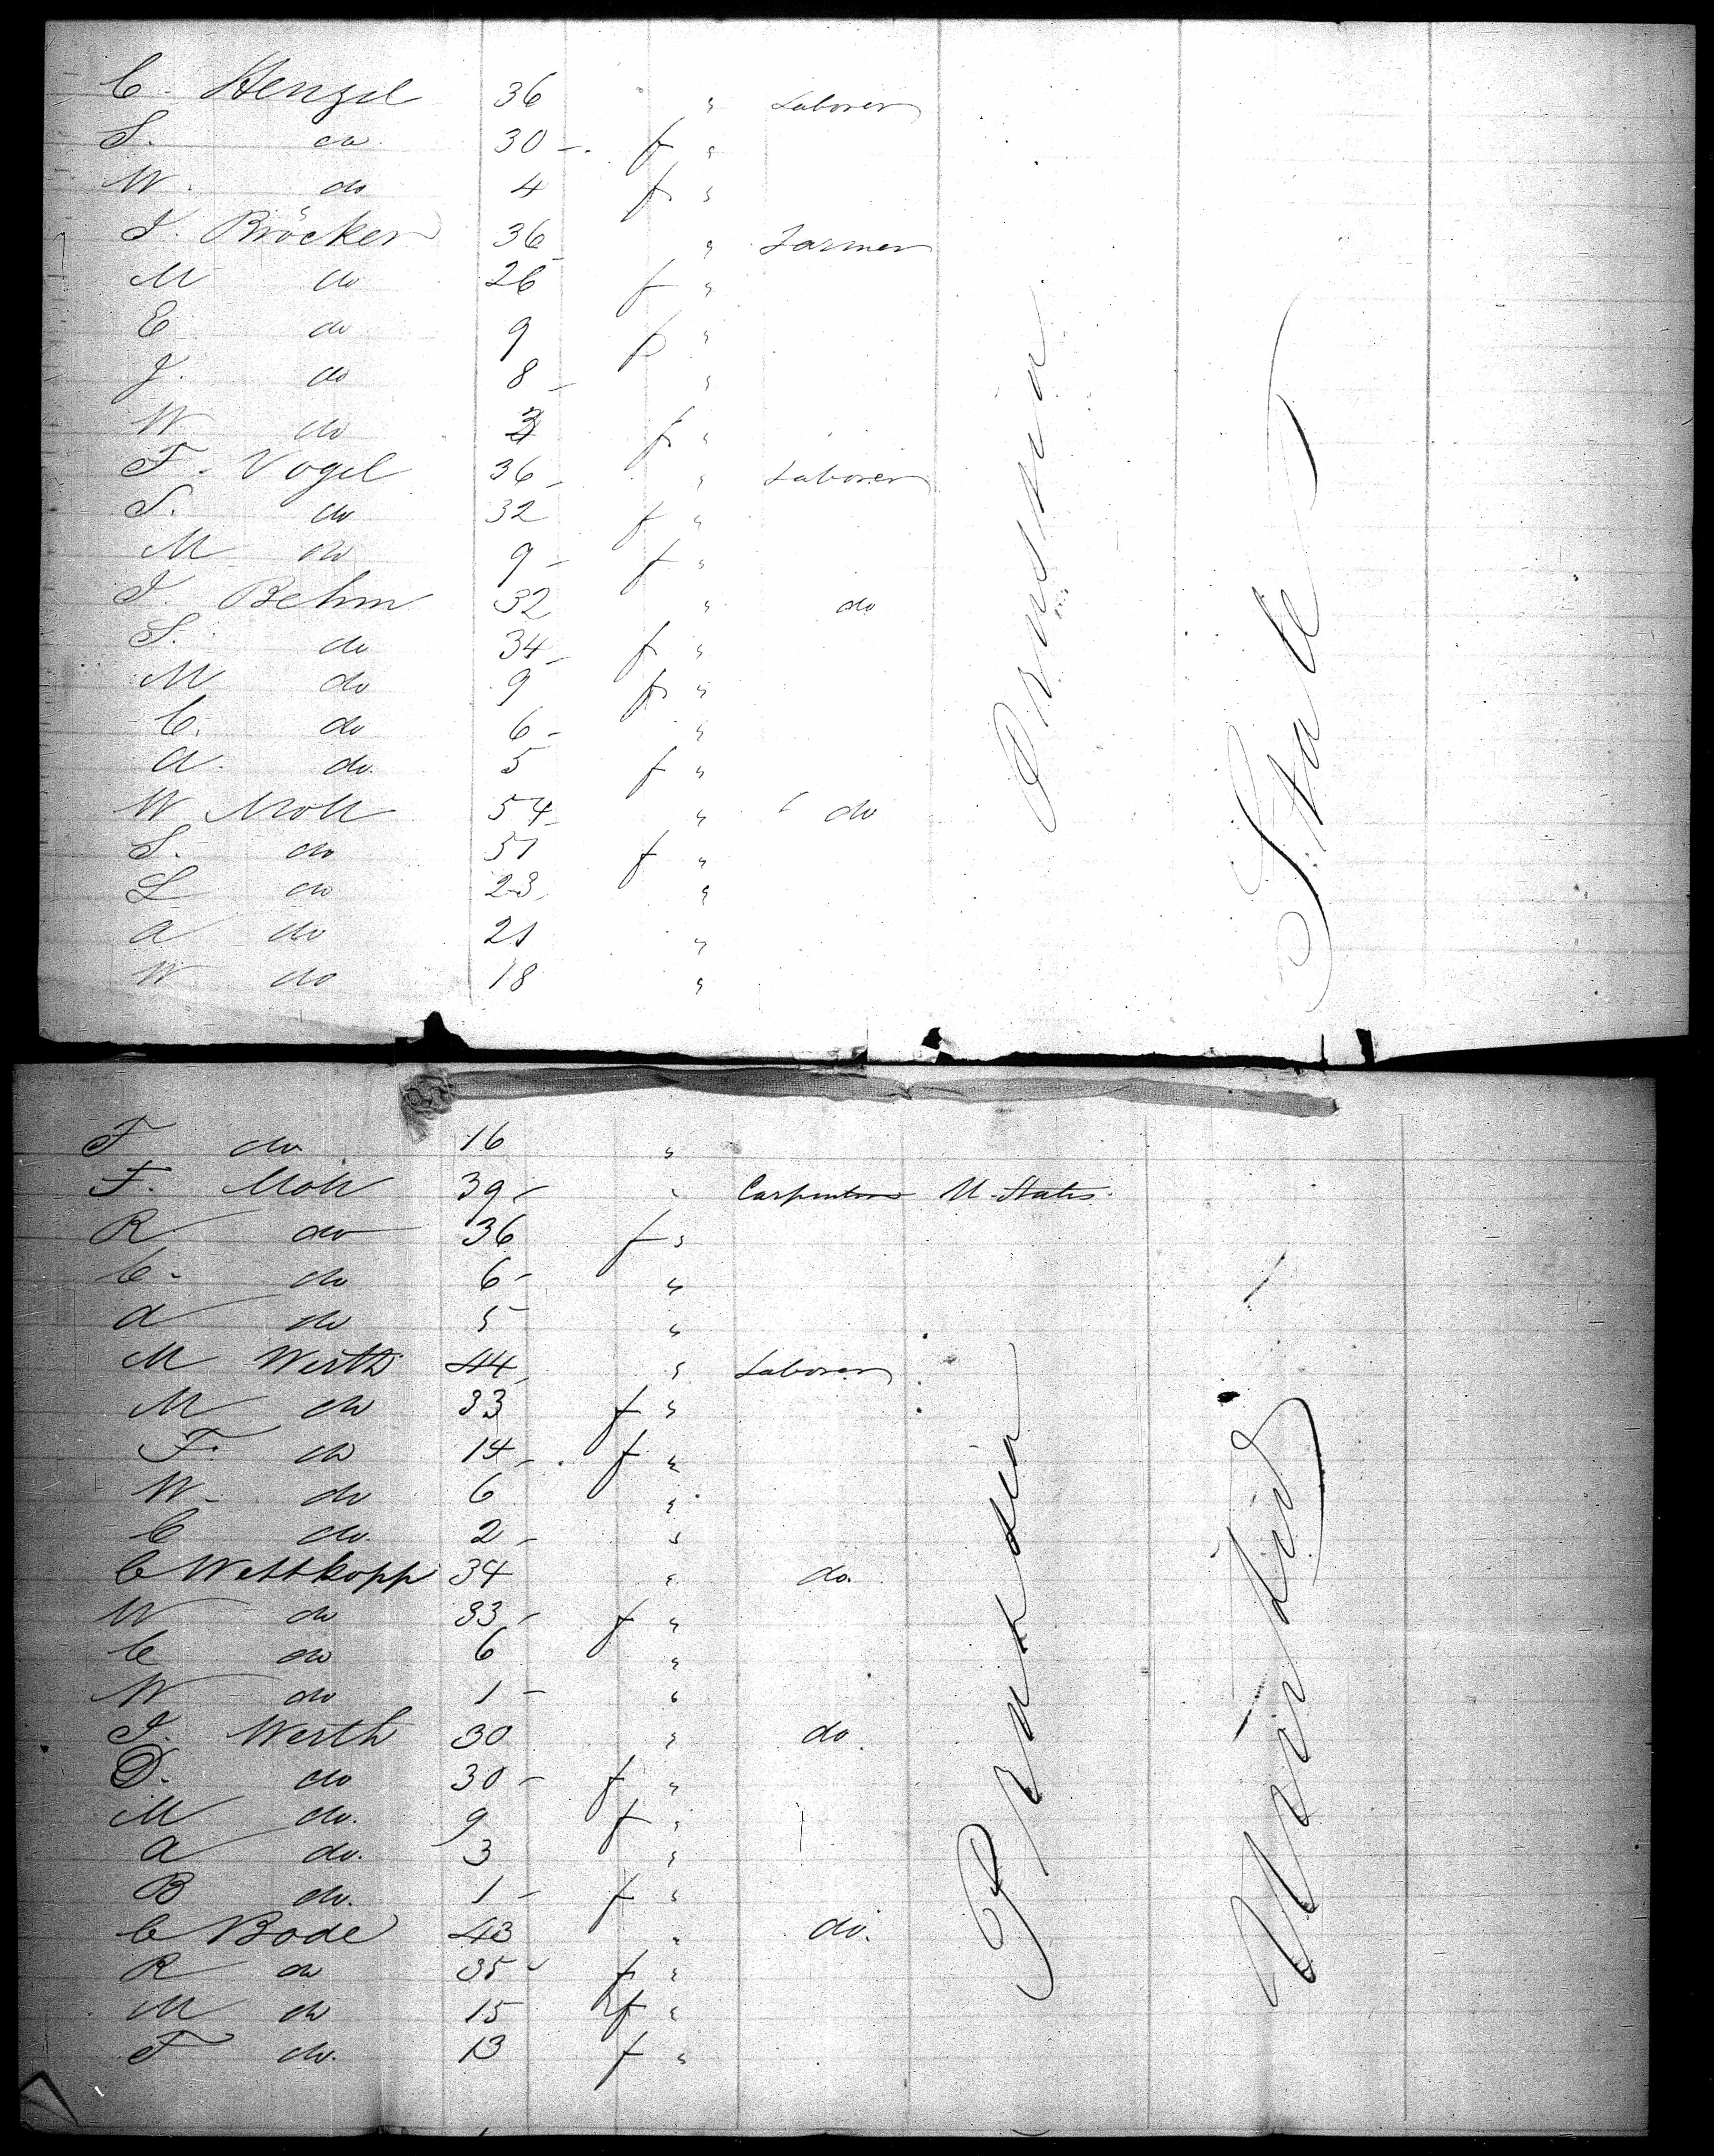 C. Hengel 36 " Laborer
S. do 30 -. f "
W. do 4 f "
J. Bröcker 36 " Farmer
M do 26 f "
E do 9 f "
J. do 8 - "
W do f "
F. Vogel 36 - " Laborer
S. do 32 f "
M do 9 - f "
J. Behm 32 " do
S. do 34 - f "
M do 9 f "
C. do 6 - "
A. do. 5 f "
W Moll 54 - " do
S. do f "
L do 23 "
A do 21 "
W do 18 "
Prussia
States
F do 16 "
F. Moll 39 - " Carpenter U. States.
R do 36 f "
C. do 6 - "
A do 5 "
M Werth 44 - " Laborer
M do 33 f "
F. do 14 - . f "
W. do 6 "
C do. 2 - "
C Wettkopp 34 " do.
W do 33 - f "
C do 6 "
W do 1 - "
J. Werth 30 " do.
D. do 30 - f "
M do. 9 f "
A do. 3 "
B do. 1 - f "
C Bode 43 " do.
R do 35 - f "
M do 15 f "
F do. 13 f "
Prussia
United